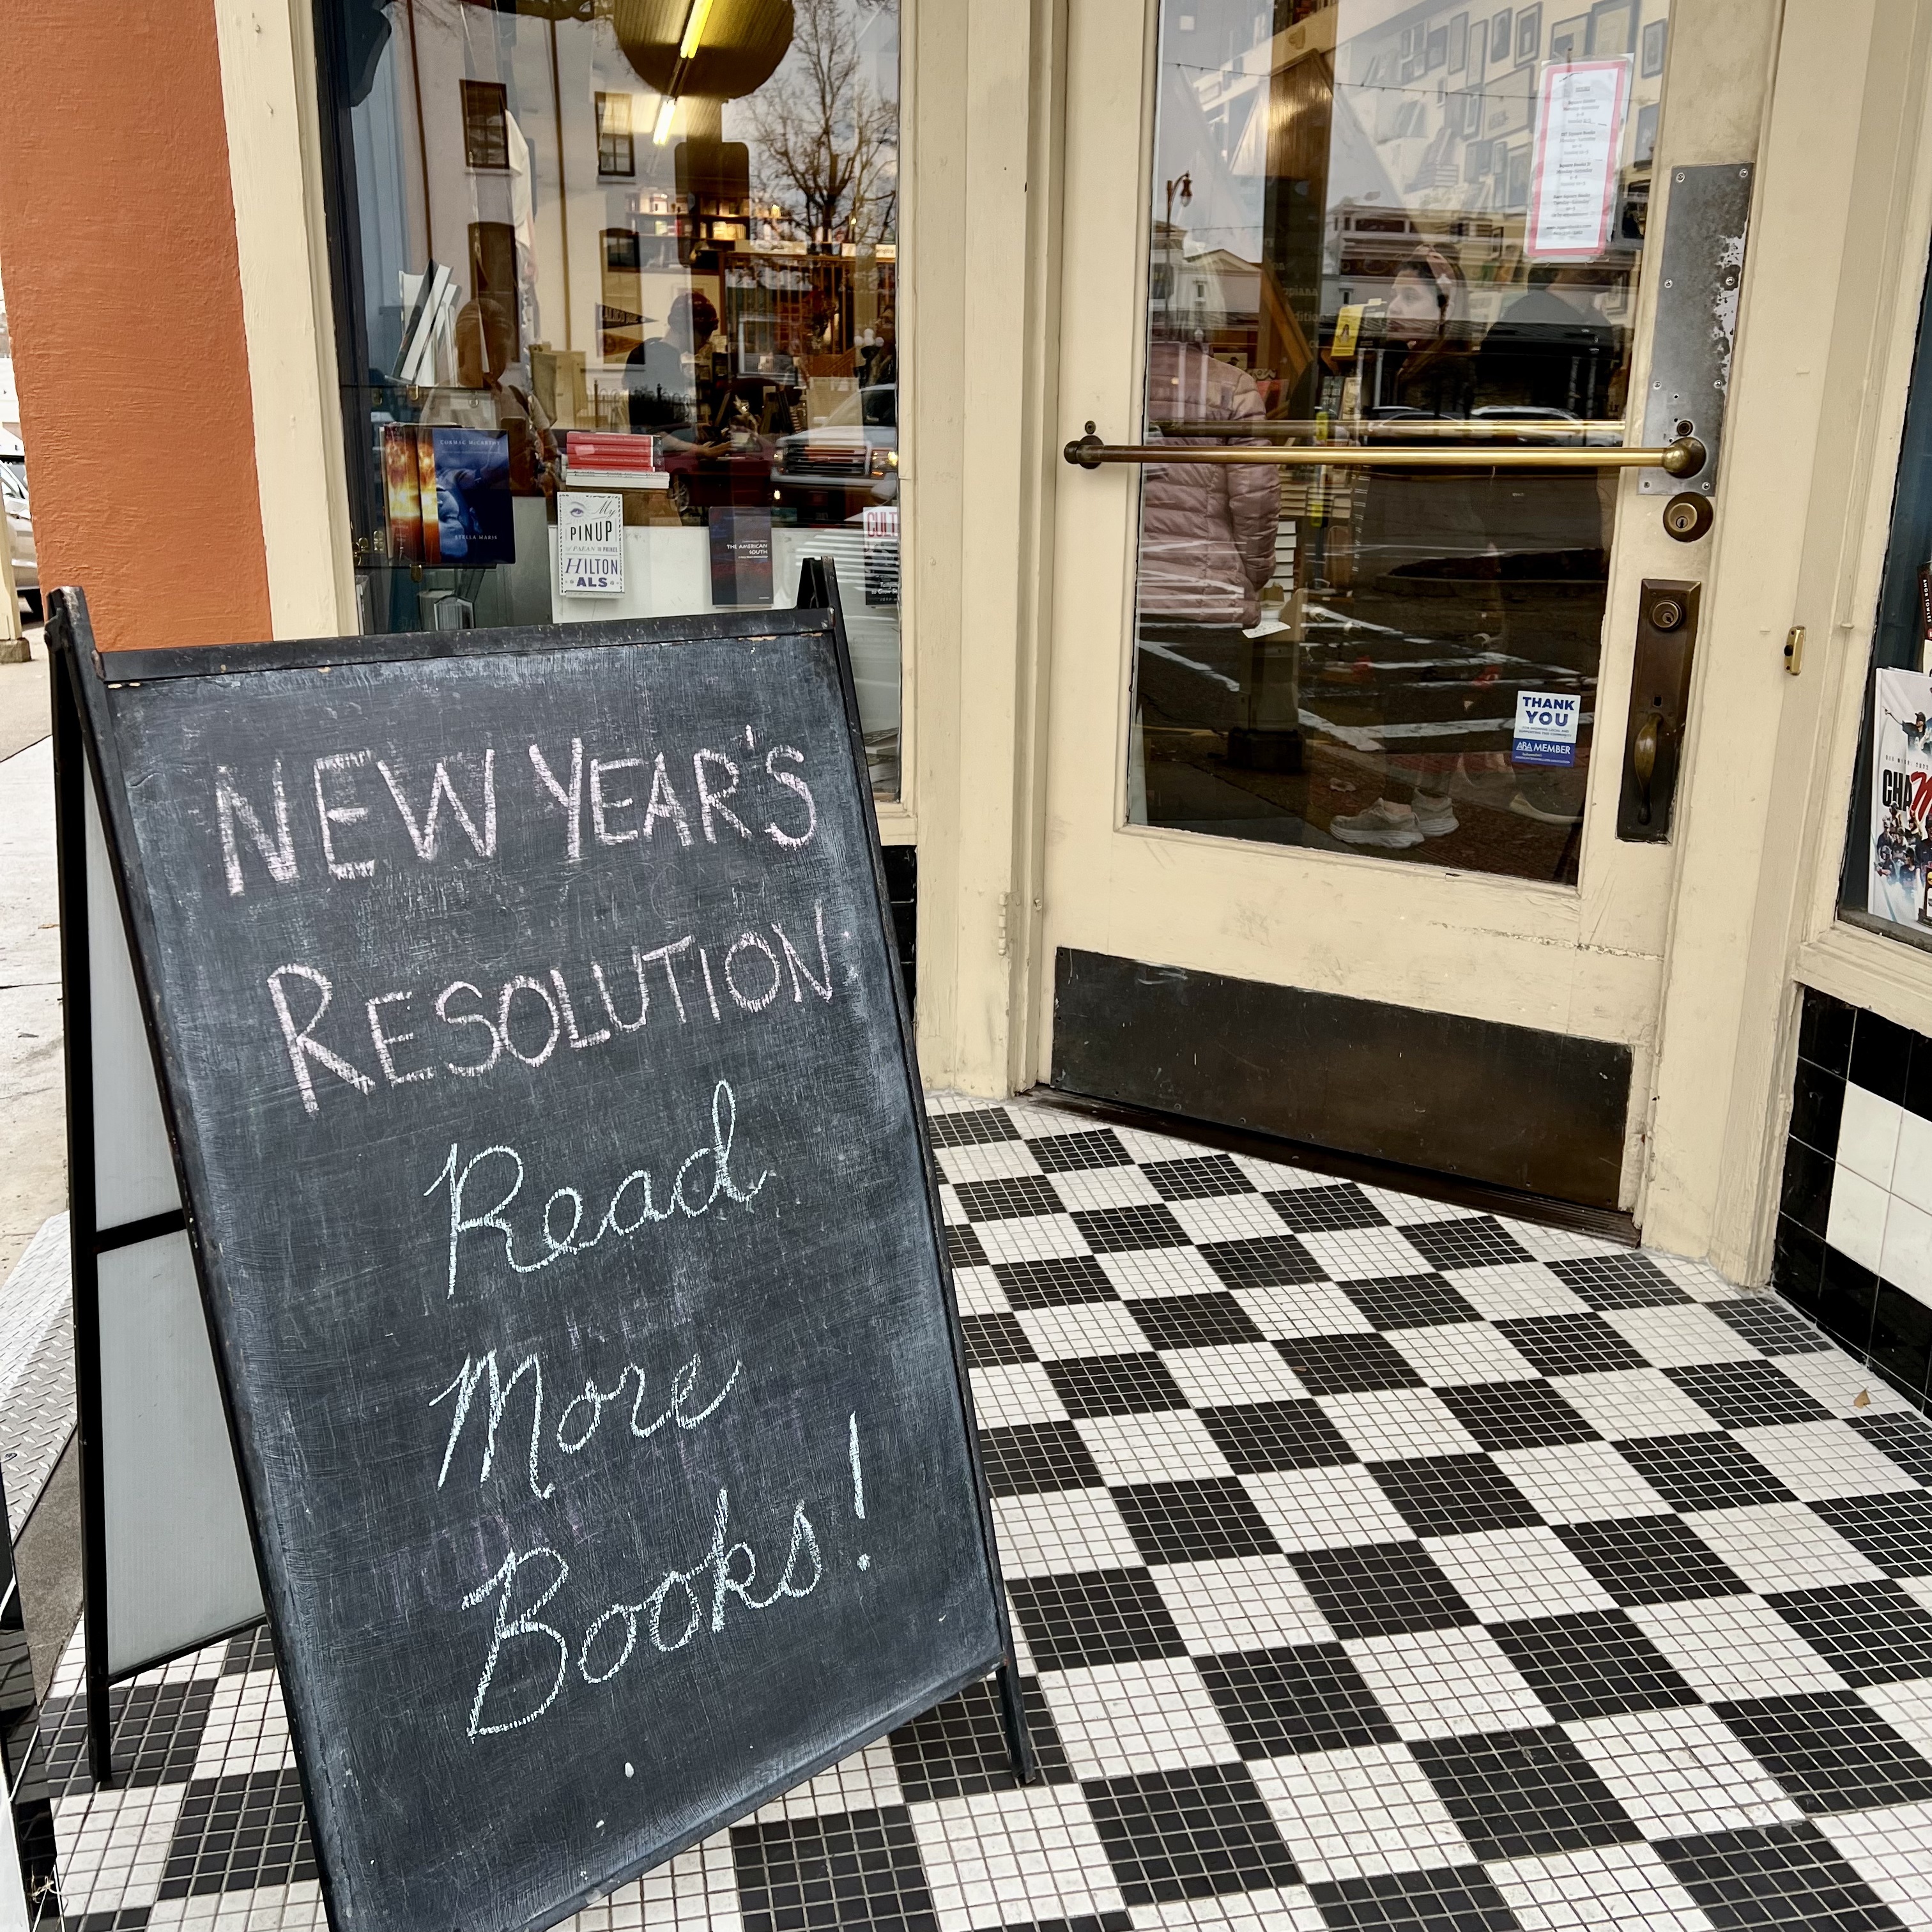 NEW YEAR'S
RESOLUTION
Read
More
Books!
CORMAC McCARTHY
STELLA MARIS
My
PINUP
HILTON
ALS
THE AMERICAN
SOUTH
CULT
THANK
YOU
ABA MEMBER
CHA